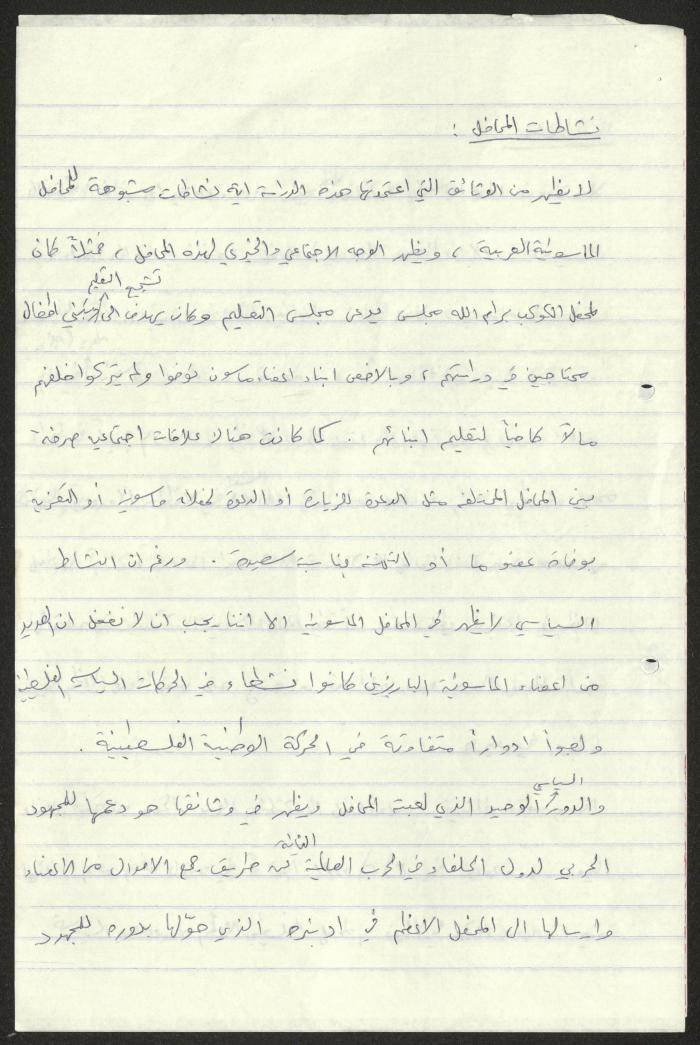 نشاطات المحافل :
لا يظهر من الوثائق التي اعتمدتها هذه الدراسة اية نشاطات مشبوهة للمحافل
الماسونية العربية ، ويظهر الوجه الاجتماعي والخيري لهذه المحافل ، فمثلاً كان
تشجيع التعليم
لمحفل الكوكب برام الله مجلس يدعى مجلس التعليم وكان يهدف الى اطفال
محتاجين في دراستهم ، وبالاخص ابناء اعضاء ماسون توفوا ولم يتركوا خلفهم
مالاً كافياً لتعليم ابنائهم . كما كانت هنالك علاقات اجتماعيه صرفة
بين المحافل المختلفه مثل الدعوة للزيارة أو الدعوة لحفلات ماسونية أو التعزية
بوفاة عضو ما أو التهنئة بمناسبة سعيدة . ورغم ان النشاط
السياسي لا يظهر في المحافل الماسونية الا اننا يجب ان لا نغفل ان العديد
من اعضاء الماسونية البارزين كانوا نشطاء في الحركات السياسيه الفلسطينية
ولعبوا ادواراً متفاوتة في الحركة الوطنية الفلسطينية .
السياسي
والدور الوحيد الذي لعبته المحافل ويظهر في وثائقها هو دعمها للمجهود
الثانية
الحربي لدول الحلفاء في الحرب العالمية عن طريق جمع الاموال من الاعضاء
وارسالها الى المحفل الاعظم في ادنبره الذي حوّلها بدوره للمجهود